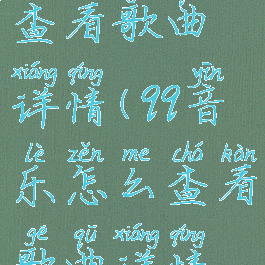 查看歌曲
xiáng qíng yīn
详情(99音
lè zěn me chá kàn
乐怎么查看
gē qǔ xiáng qíng
歌曲详情